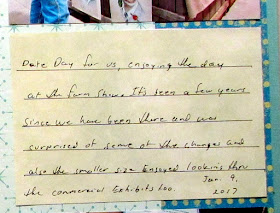 Date Day for us, enjoying the day
at the farm show. It's been a few years
since we have been there and was
surprised of some of the changes and
also the smaller size Enjoyed looking thru
the commercial Exhibits too. Jan. 9,
2017